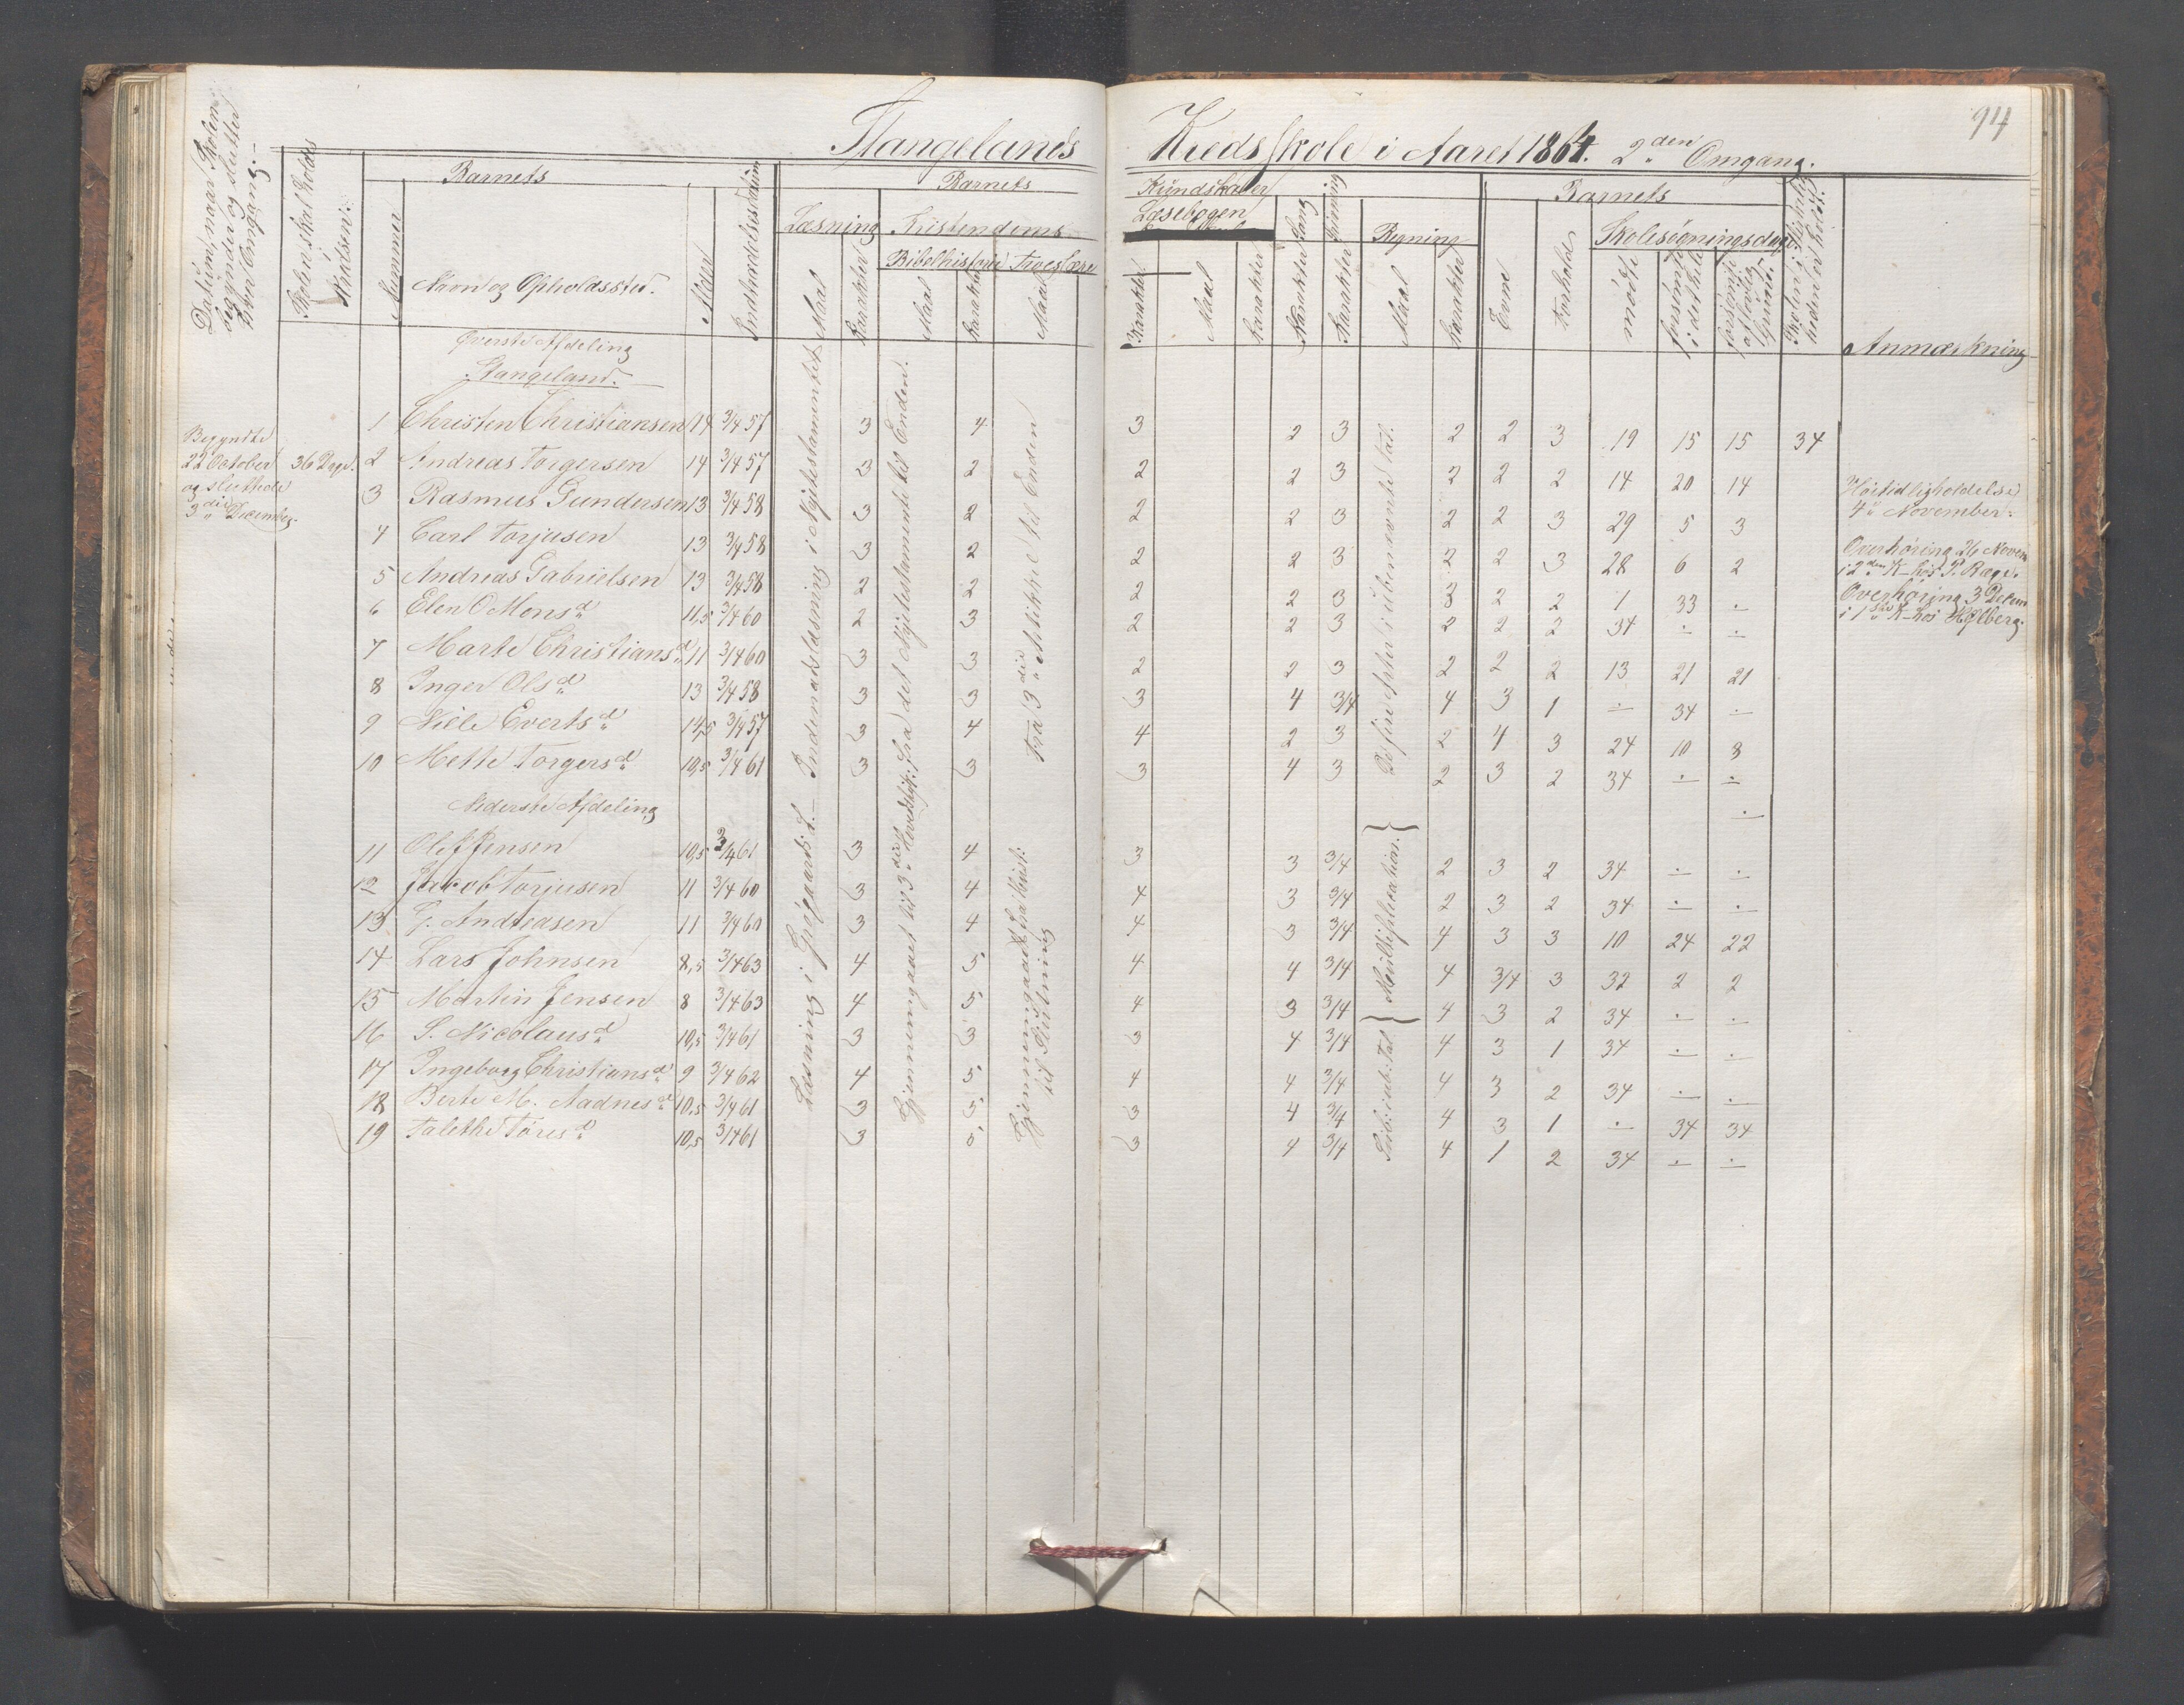 94
Stangelands Kredsskole i Aaret 1864. 2den Omgang.
Datum, naar Skolen begynder og slutter hver Omgang.
Skolen skal holdes
Nummer
Barnets
Navn og Opholdssted.
Alder
Indtrædelsesdatum
Barnets
Læsning
Maal
Karakter
Kristendoms
Bibelhistorie
Maal
Karakter
Troeslære
Maal
Kundskaber
Karakter
Læsebogen
Maal
Karakter
Sang
Karakter
Skrivning
Karakter
Regning
Maal
Karakter
Barnets
Evne
Forhold
Skolesøgningsdage
mødt
forsømt i det Hele
forsømt af lovlig Grund
Skolen i Virkeligheden er holdt.
Anmærkning
Øverste Afdeling
Stangeland.
1 Christen Christiansen 14 3/4 57 3 4 3 2 3 2 2 3 19 15 15 34
2 Andreas Torgersen 14 3/4 57 3 2 2 2 3 2 2 2 14 20 14
3 Rasmus Gundersen 13 3/4 58 3 2 2 2 3 2 2 3 29 5 3
4 Carl Torjusen 13 3/4 58 3 2 2 2 3 2 2 3 28 6 2
5 Andreas Gabrielsen 13 3/4 58 2 2 2 2 3 3 2 2 1 33 -
6 Elen O Monsd 11,5 3/4 60 2 3 2 2 3 2 2 2 34 - -
7 Marte Christiansd 11 3/4 60 3 3 2 2 3 2 2 2 13 21 21
8 Inger Olsd 13 3/4 58 3 3 3 4 3/4 4 3 1 - 34 -
9 Nille Evertsd 14,5 3/4 57 3 4 4 2 3 2 4 3 24 10 8
10 Mette Torgersd 10,5 3/4 61 3 3 3 4 3 2 3 2 34 - -
Nederste Afdeling
11 Ole J Jensen 10,5 3/4 61 3 4 3 3 3/4 2 3 2 34 - -
12 Jacob Torjusen 11 3/4 60 3 4 4 3 3/4 2 3 2 34 - -
13 G. Andreasen 11 3/4 60 3 4 4 3 3/4 4 3 3 10 24 22
14 Lars Johnsen 8,5 3/4 63 4 5 4 4 3/4 4 3/4 3 32 2 2
15 Martin Jensen 8 3/4 63 4 5 4 3 3/4 4 3 2 34 - -
16 S. Nicolausd 10,5 3/4 61 3 3 3 4 3/4 4 3 1 34 - -
17 Ingeborg Christiansd 9 3/4 62 4 5 4 4 3/4 4 3 2 34 - -
18 Berte M. Aadnesd 10,5 3/4 61 3 5 3 4 3/4 4 3 1 - 34 34
19 Talethe Toresd 10,5 3/4 61 3 5 3 4 3/4 4 1 2 34 - -
Begyndte
22 October 36 Dage.
og sluttede
3die December.
Læsning i Grøgaards L. - Indenadslæsning i Nytestamentet
Gjennemgaaet til 3die Hovedst: Fra det Nytestamente til Enden.
fra 3die Artikkel til Enden
til Slutning
De fire Arter i ubenævnte Tal.
Multiplication.
Høitidligholdelse
4de November.
Overhøring 26 Novem
i 2den K- hos P. Rage.
Overhøring 3 Decem
i 1ste K- hos Kjlberg.